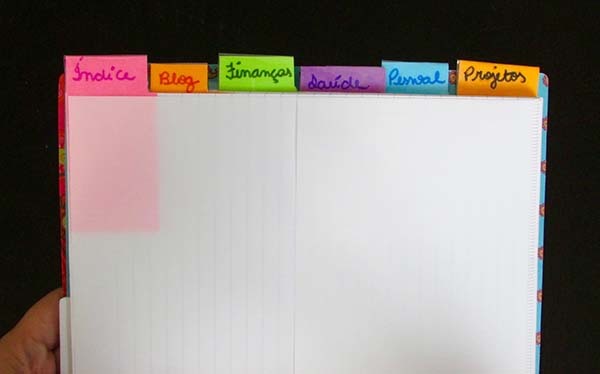 Índice
Blog
Finanças
Saúde
Pessoal
Projetos